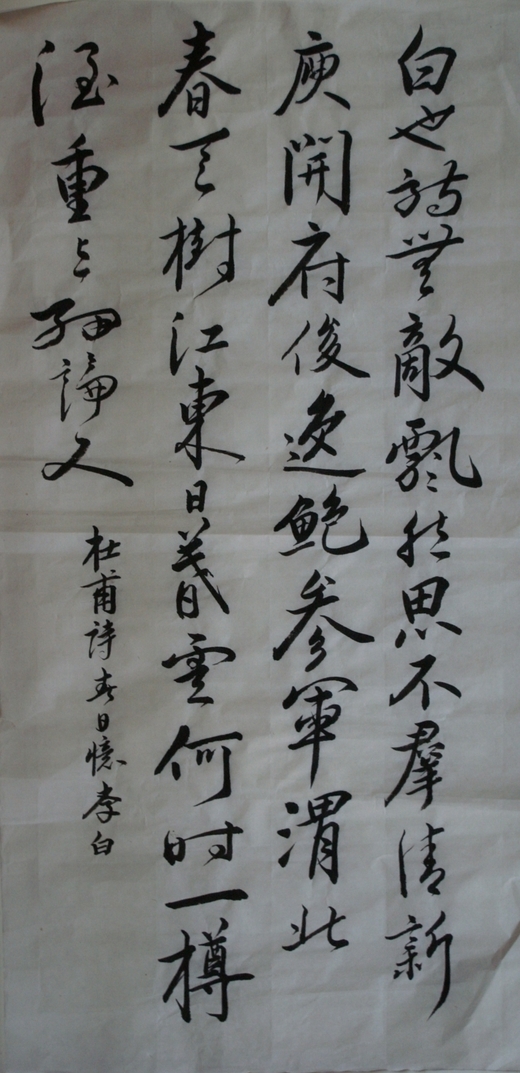 白也詩無敵飄然思不羣清新
庾開府俊逸鮑參軍渭北
春天樹江東日暮雲何时一樽
酒重与細論文
杜甫詩春日憶李白